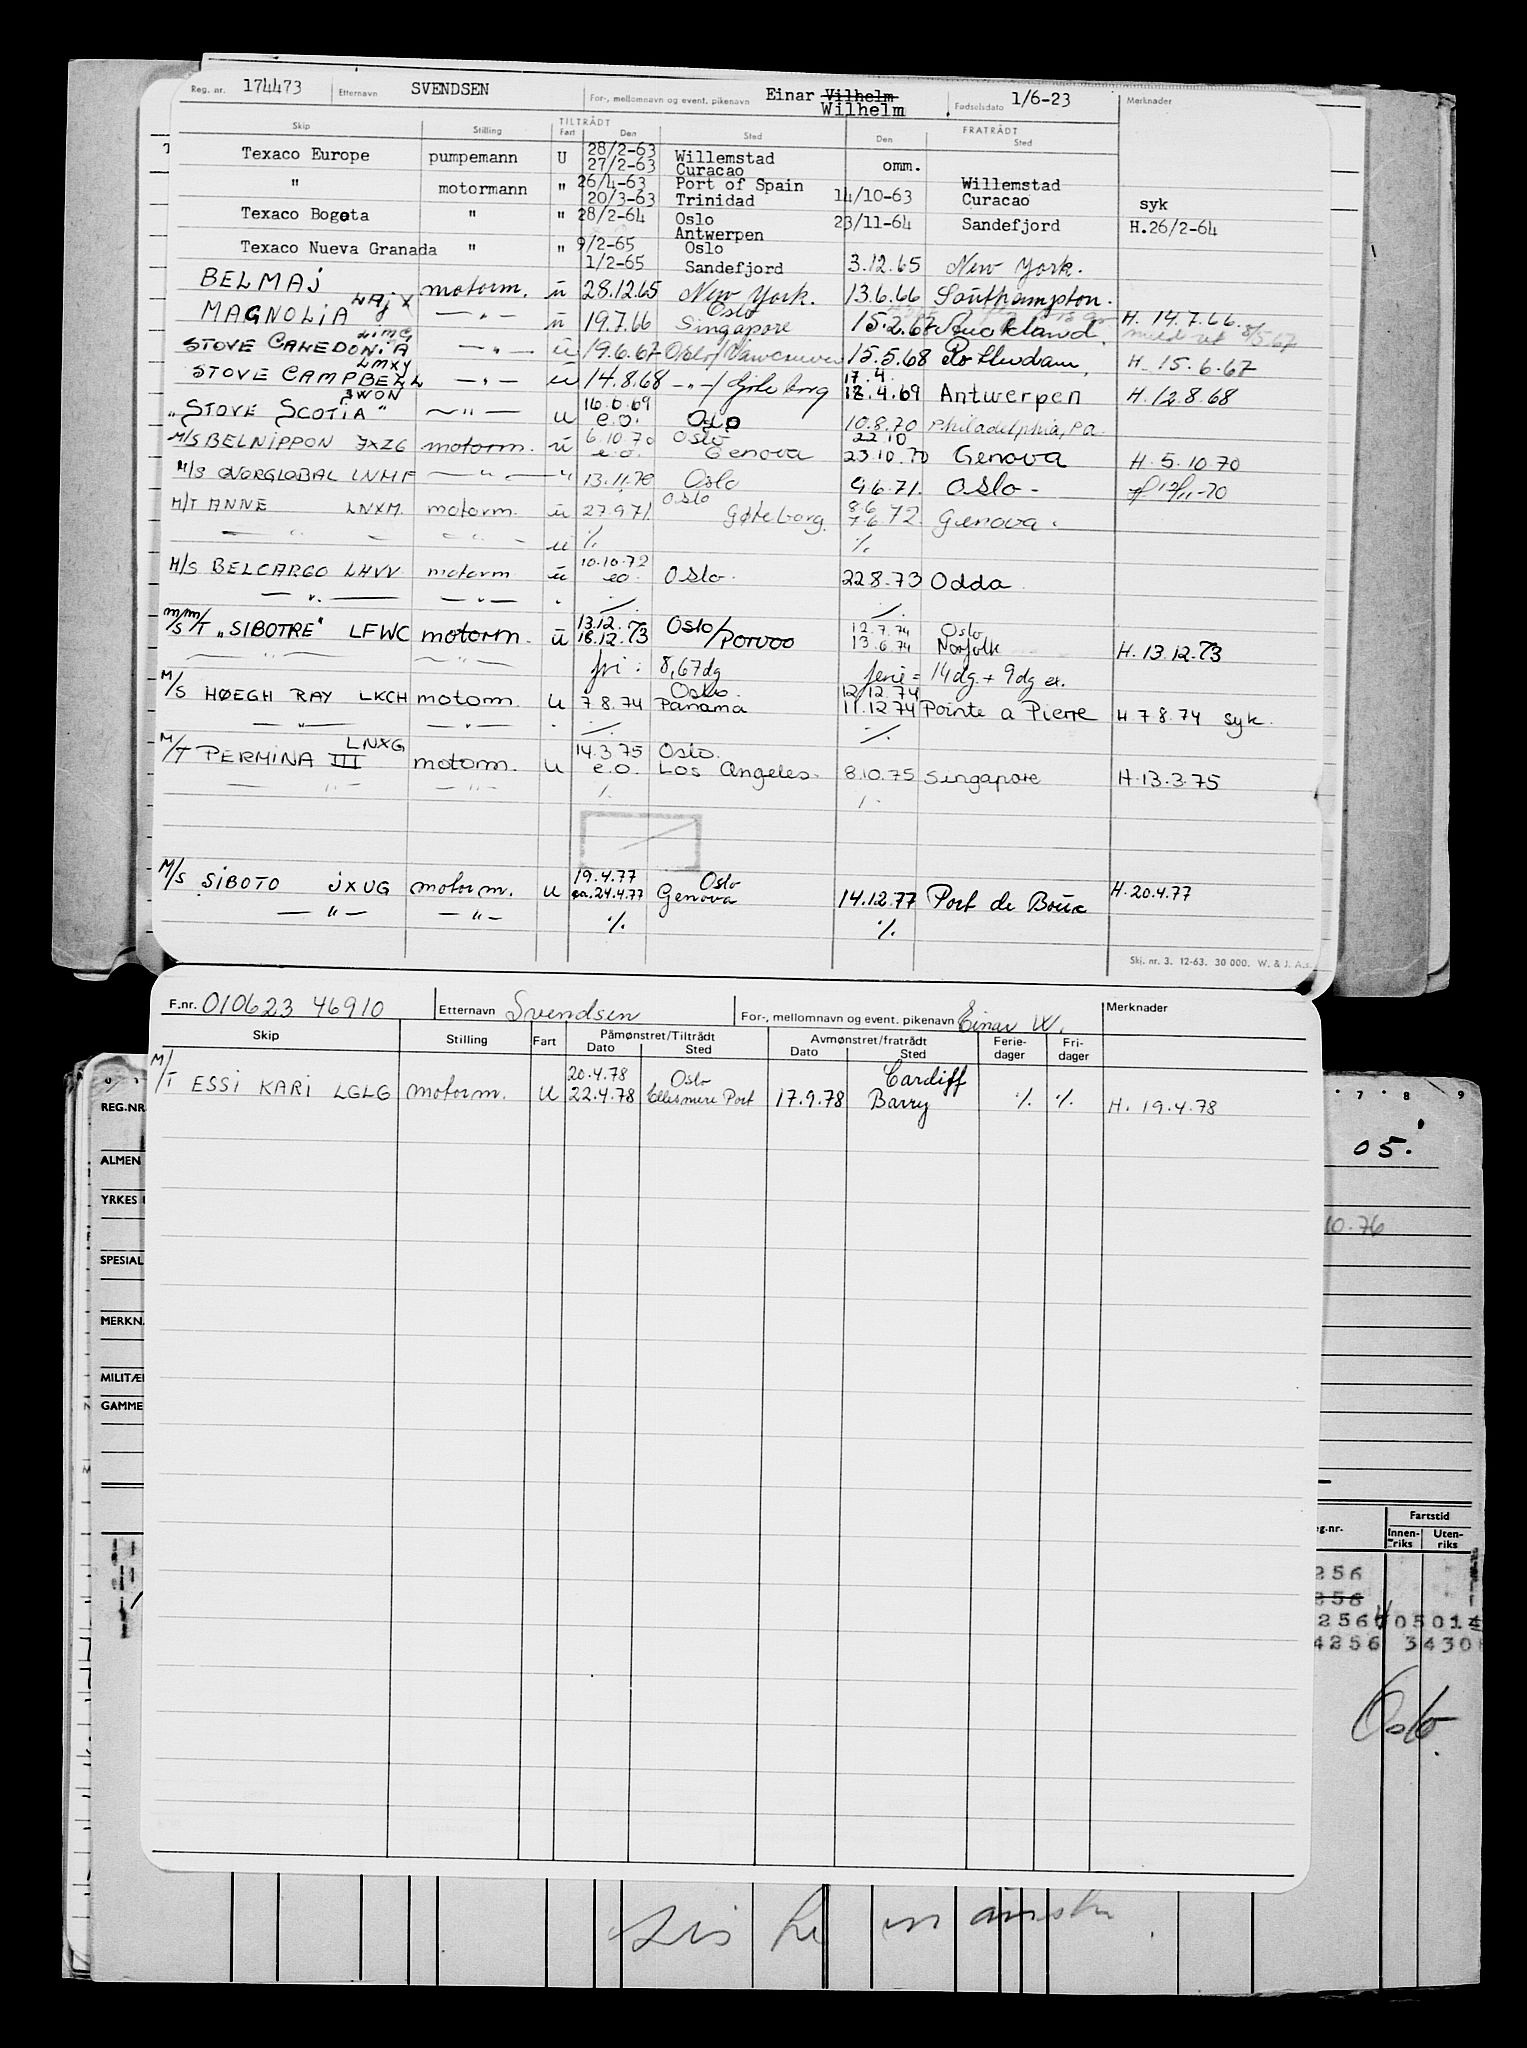 Reg. nr. 174473 Etternavn SVENDSEN For-, mellomnavn og event. pikenavn Einar Vilhelm Wilhelm Fødselsdato 1/6-23 Merknader
TILTRÅDT FRATRÅDT
Skip Stilling Fart Den Sted Den Sted
28/2-63
Texaco Europe pumpemann U 27/2-63 Willemstad Curacao omm.
" motormann " 26/4-63 Port of Spain Willemstad
20/3-63 Trinidad 14/10-63 Curacao syk
Texaco Bogota " " 28/2-64 Oslo 23/11-64 Sandefjord H.26/2-64
Antwerpen
Texaco Nueva Granada " " 9/2-65 Oslo
1/2-65 Sandefjord 3.12.65 New York.
BELMAJ motorm. ū 28.12.65 New York. 13.6.66 Southampton.
MAGNOLIA LAJX —"— ū 19.7.66 Oslo Singapore 15.2.67 Auckland. H. 14.7.66. 8/5.67
STOVE CALEDONIA —"— ū 19.6.67 Oslo/Vancouver 15.5.68 Rotterdam. H. 15.6.67
LMXY
STOVE CAMPBELL —"— ū 14.8.68 —"—/Gøteborg 17.4. 18.4.69 Antwerpen H. 12.8.68
JWON
"STOVE SCOTIA" —"— u 16.6.69 e.o. Oslo 10.8.70 Philadelphia, Pa.
M/S BELNIPPON JXZG motorm. ū 6.10.70 e.o. Oslo Genova 22.10 23.10.70 Genova H. 5.10.70
M/S NORGLOBAL LNMF —"— " 13.11.70 Oslo 9.6.71. Oslo-
M/T ANNE LNXM motorm. ū 27.9.71. Oslo Gøteborg. 8.6 7.6 72. Genova.
—"— —"— ū % %
M/S BELCARGO LHVV motorm ū 10.10.72 eo. Oslo. 22.8.73 Odda
—"— —"— " % %
M/S M/T "SIBOTRE" LFWC motorm. ū 13.12.73 18.12.73 Oslo/Porvoo 12.7.74 Oslo 13.6.74 Norfolk H. 13.12.73
—"— —"— fri: 8,67dg ferie = 14dg. + 9dg ex.
M/S HØEGH RAY LKCH motorm. u 7.8.74 Oslo. Panama 12/12.74 11.12.74 Pointe a Pierre H.7.8.74 syk.
—"— —"— . % %
LNXG
M/T PERMINA III motorm. u 14.3.75 e.o. Oslo. Los Angeles. 8.10.75 Singapore H.13.3.75
—"— —"— % %
M/S SIBOTO JXUG motorm. u 19.4.77 ca.24.4.77 Oslo Genova 14.12.77 Port de Bouc H.20.4.77
—"— —"— % %
Skj. nr. 3. 12-63. 30 000. W. & J. A.s.
F.nr. 010623 46910 Etternavn Svendsen For-, mellomnavn og event. pikenavn Einar W. Merknader
Skip Stilling Fart Påmønstret/Tiltrådt Avmønstret/fratrådt Ferie-dager Fri-dager
Dato Sted Dato Sted
M/T ESSI KARI LGLG motorm. U 20.4.78 22.4.78 Oslo Ellesmere Port 17.9.78 Cardiff Barry % % H. 19.4.78
REG.NR.
7 8 9
05.
ALMEN
YRKES
10.76
SPESIAL
MERKN.
MILITÆ
GAMME
eg.nr. Fartstid
Innen-riks Uten-riks
256
256
256 05014
4256 3430
Oslo.